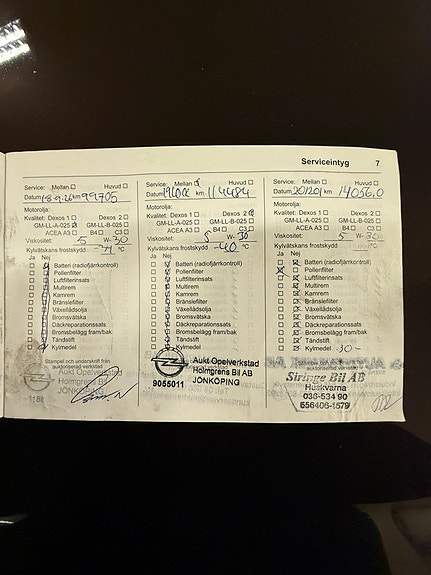 Serviceintyg 7
Service: Mellan Huvud
Datum km 99705
Motorolja:
Kvalitet: Dexos 1 Dexos 2
GM-LL-A-025 GM-LL-B-025
ACEA A3 B4 C3
Viskositet: 5 W- 30
Kylvätskans frostskydd °C
Ja Nej
Batteri (radiofjärrkontroll)
Pollenfilter
Luftfilterinsats
Multirem
Kamrem
Bränslefilter
Växellådsolja
Bromsvätska
Däckreparationssats
Bromsbelägg fram/bak
Tändstift
Kylmedel
Stämpel och underskrift från
auktoriserad verkstad
Aukt Opelverkstad
Holmgrens Bil AB
JÖNKÖPING
Service: Mellan Huvud
Datum km 114484
Motorolja:
Kvalitet: Dexos 1 Dexos 2
GM-LL-A-025 GM-LL-B-025
ACEA A3 B4 C3
Viskositet: 5 W- 30
Kylvätskans frostskydd -40 °C
Ja Nej
Batteri (radiofjärrkontroll)
Pollenfilter
Luftfilterinsats
Multirem
Kamrem
Bränslefilter
Växellådsolja
Bromsvätska
Däckreparationssats
Bromsbelägg fram/bak
Tändstift
Kylmedel
Aukt Opelverkstad
Holmgrens Bil AB
JÖNKÖPING
9055011
Service: Mellan Huvud
Datum 201201 km 140560
Motorolja:
Kvalitet: Dexos 1 Dexos 2
GM-LL-A-025 GM-LL-B-025
ACEA A3 B4 C3
Viskositet: 5 W- 30
Kylvätskans frostskydd °C
Ja Nej
Batteri (radiofjärrkontroll)
Pollenfilter
Luftfilterinsats
Multirem
Kamrem
Bränslefilter
Växellådsolja
Bromsvätska
Däckreparationssats
Bromsbelägg fram/bak
Tändstift
Kylmedel -30-
auktoriserad verkstad
Siringe Bil AB
Huskvarna
036-534 90
556406-1579